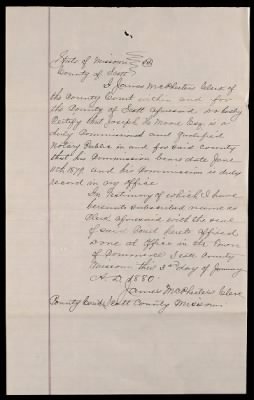 State of Missouri } SS
County of Scott
I James McPheters Clerk of
the County Court within and for
the County of Scott aforesaid do hereby
Certify that Joseph H. Moore Esq. is a
duly Commissioned and qualified
Notary Public in and for said County
that his Commission bears date June
11th 1879, and his Commission is duly
record in my office
In Testimony of which I have
hereunto subscribed name as
Clerk aforesaid with the seal
of said Court hereto affixed
Done at office in the Town
of Commerce Scott County
Missouri this 3rd day of January
A.D. 1880.
James McPheters Clerk
County Court Scott County Missouri